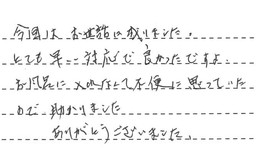 今回は お世話に成りました。
とても早い対応で良かったですよ。
お風呂に入れなくて不便に思っていた
ので 助かりました
ありがとうございました。